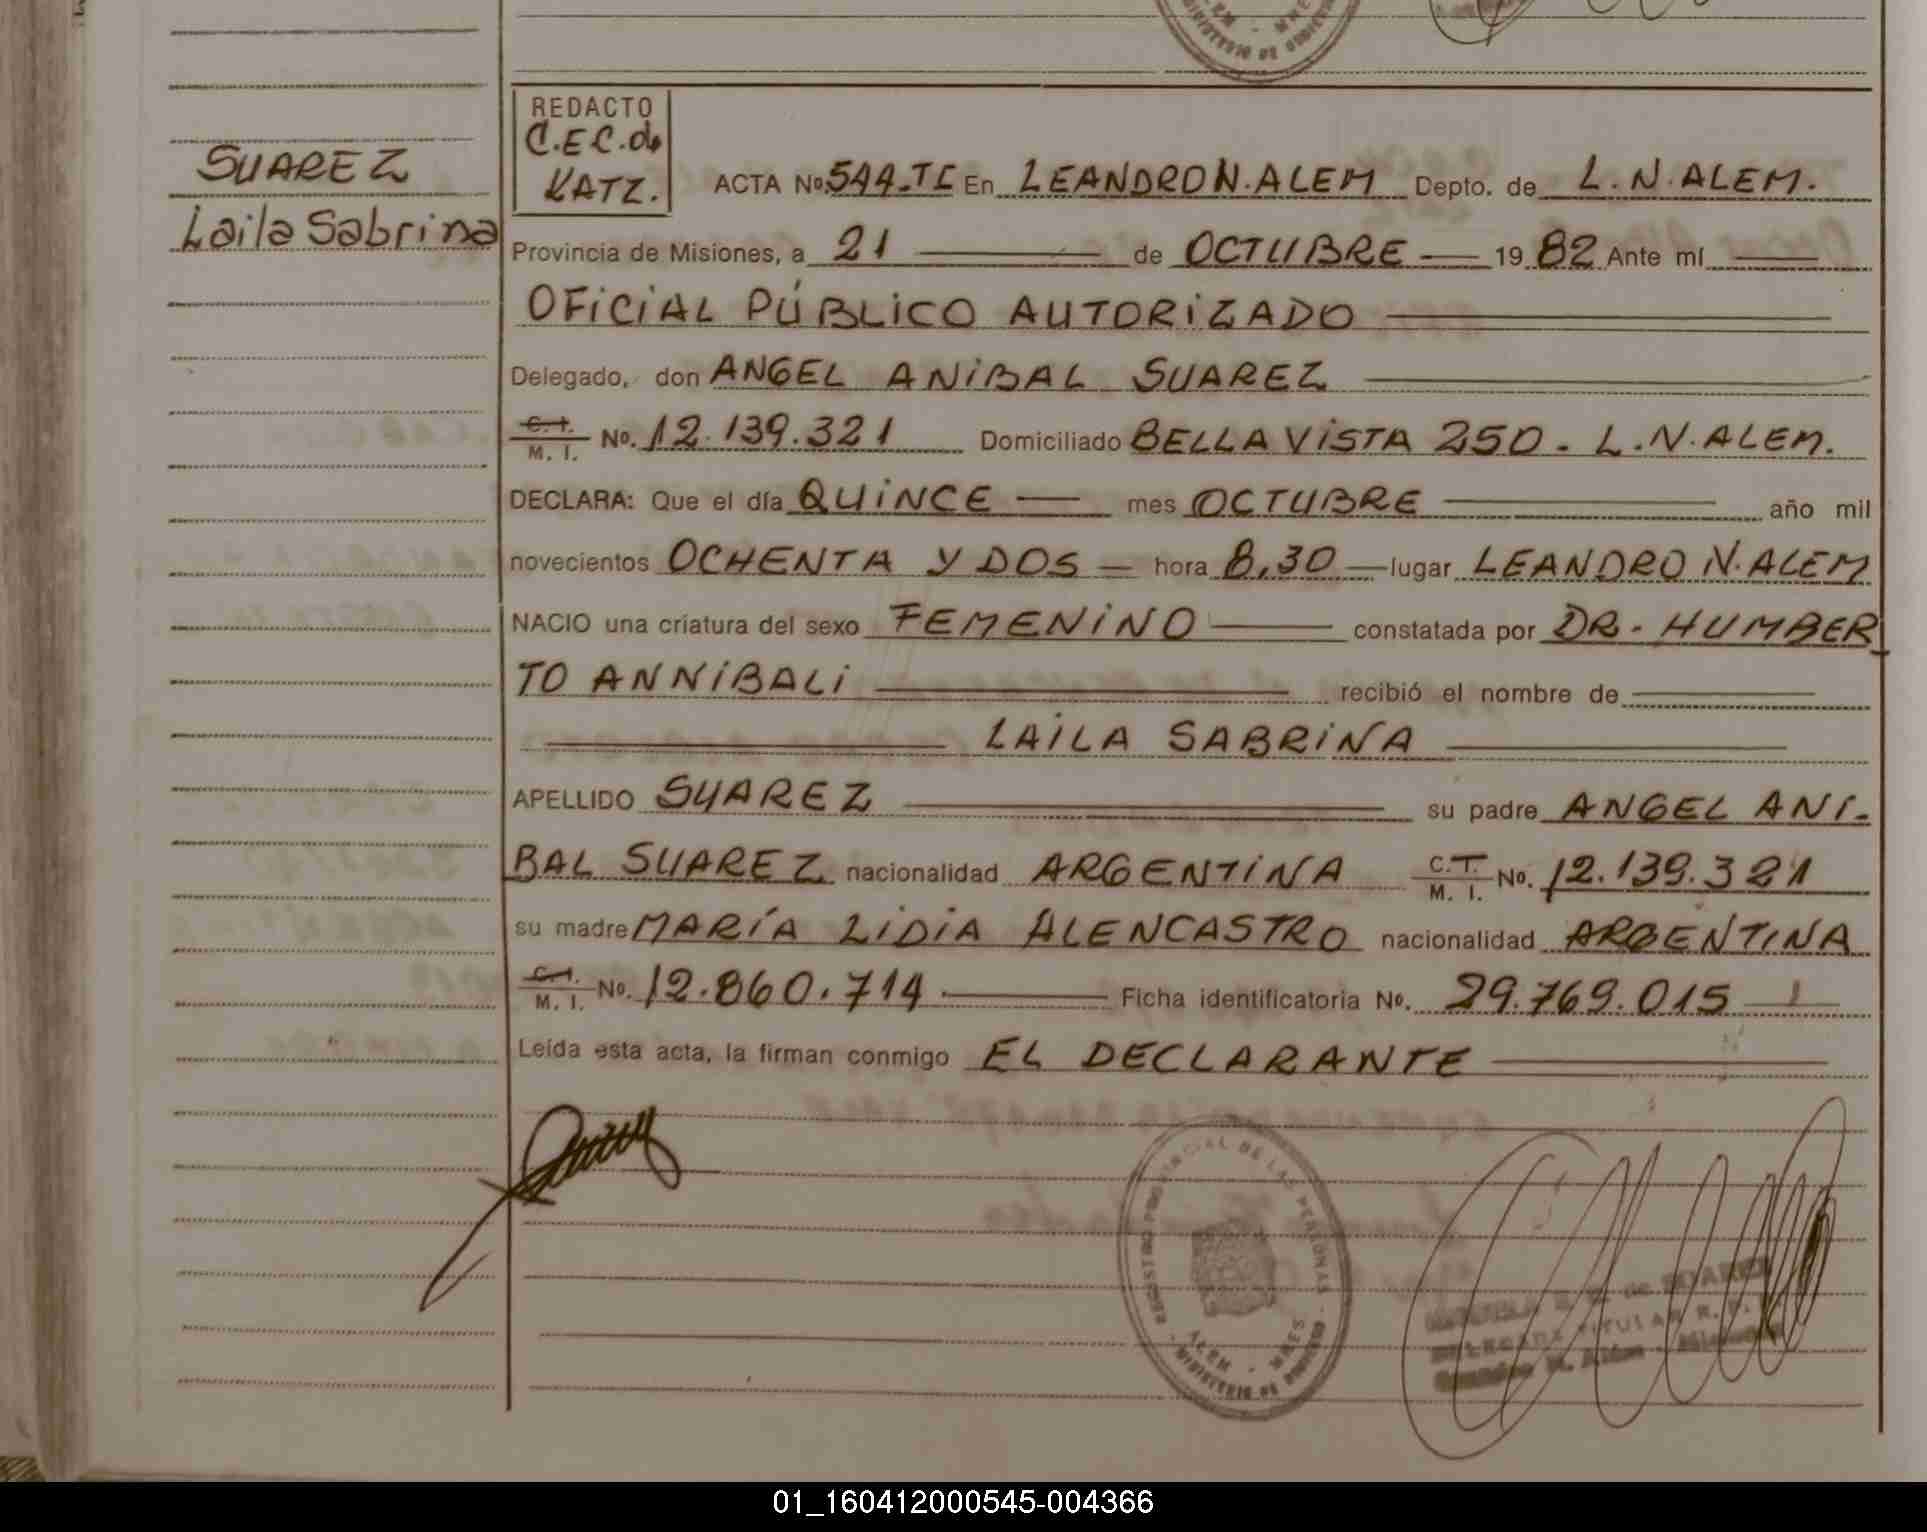 SUAREZ
Laila Sabrina
REDACTO
C.E.C.de
KATZ.
ACTA Nº 544-TI En LEANDRO N. ALEM Depto. de L.N.ALEM.
Provincia de Misiones, a 21 de OCTUBRE 19 82 Ante mí
OFICIAL PÚBLICO AUTORIZADO
Delegado, don ANGEL ANIBAL SUAREZ
C.I. M.I. Nº. 12.139.321 Domiciliado BELLA VISTA 250. L.N.ALEM.
DECLARA: Que el día QUINCE mes OCTUBRE año mil
novecientos OCHENTA Y DOS hora 8,30 lugar LEANDRO N.ALEM
NACIO una criatura del sexo FEMENINO constatada por DR. HUMBER
TO ANNIBALI recibió el nombre de
LAILA SABRINA
APELLIDO SUAREZ su padre ANGEL ANI-
BAL SUAREZ nacionalidad ARGENTINA C.I. M.I. Nº. 12.139.321
su madre MARÍA LIDIA ALENCASTRO nacionalidad ARGENTINA
C.I. M.I. Nº. 12.860.714 Ficha identificatoria Nº. 29.769.015
Leída esta acta, la firman conmigo EL DECLARANTE
REGISTRO PROVINCIAL DE LAS PERSONAS
ALEM - MNES
MINISTERIO DE GOBIERNO
de SUAREZ
DELEGADA TITULAR R.P.
Leandro N. Alem - Misiones
01_160412000545-004366